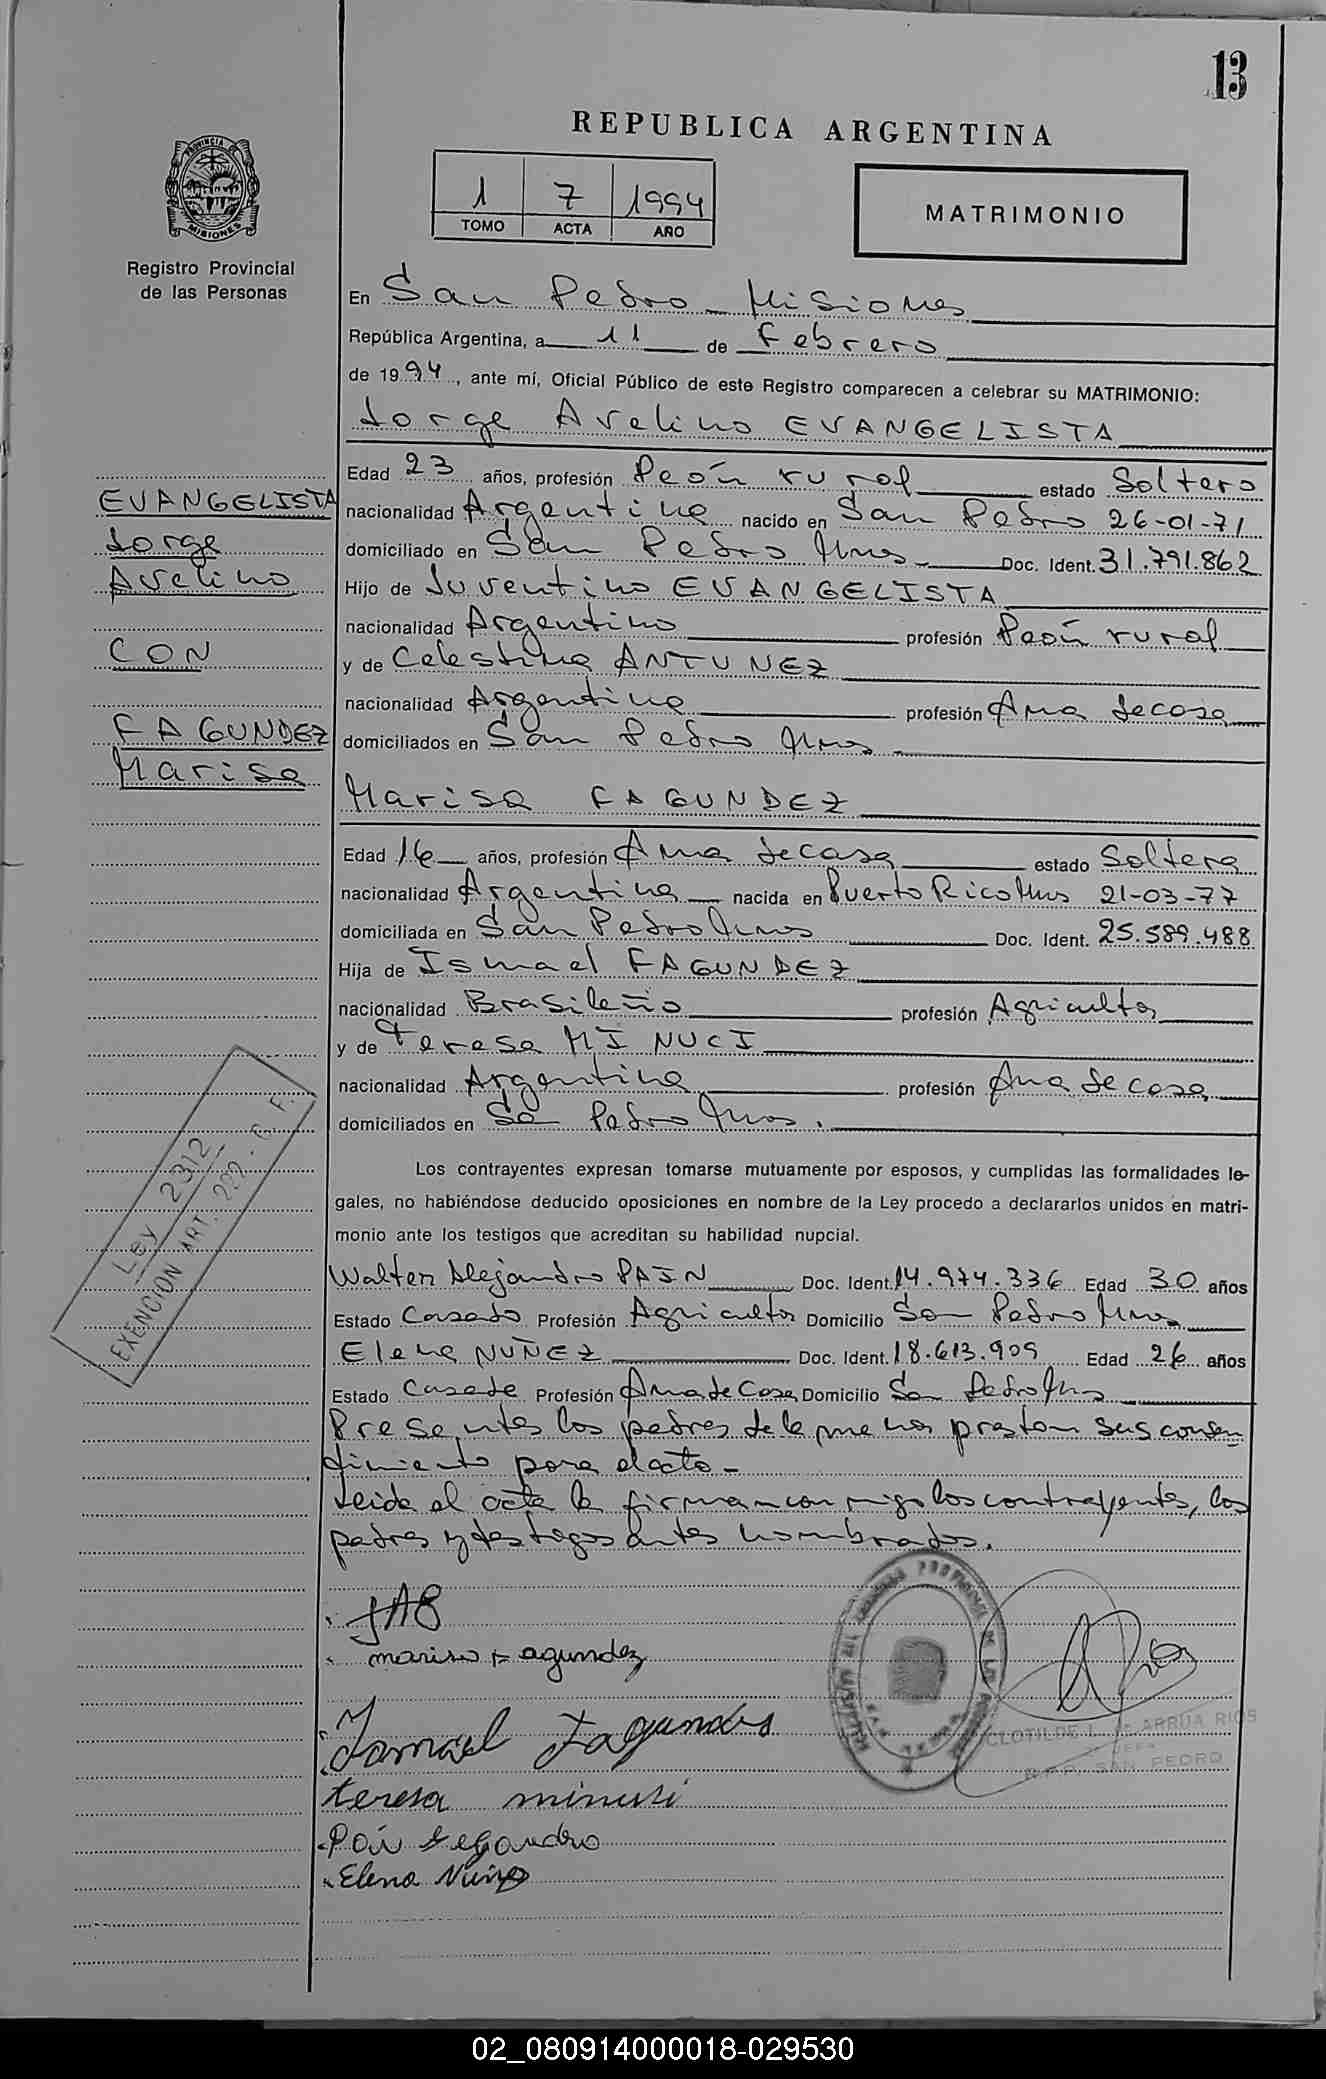 13
REPUBLICA ARGENTINA
PROVINCIA DE
MISIONES
1 7 1994
TOMO ACTA AÑO
MATRIMONIO
Registro Provincial
de las Personas
En San Pedro Misiones
República Argentina, a 11 de Febrero
de 1994, ante mí, Oficial Público de este Registro comparecen a celebrar su MATRIMONIO:
Jorge Avelino EVANGELISTA
Edad 23 años, profesión Peón rural estado Soltero
EVANGELISTA
nacionalidad Argentina nacido en San Pedro 26-01-71
Jorge
domiciliado en San Pedro Mnes Doc. Ident. 31.791.862
Avelino
Hijo de Juventino EVANGELISTA
nacionalidad Argentino profesión Peón rural
CON
y de Celestina ANTUNEZ
nacionalidad Argentina profesión Ama de casa
FAGUNDEZ
domiciliados en San Pedro Mnes.
Marisa
Marisa FAGUNDEZ
Edad 16 años, profesión Ama de casa estado Soltera
nacionalidad Argentina nacida en Puerto Rico Mnes 21-03-77
domiciliada en San Pedro Mnes Doc. Ident. 25.589.488
Hija de Ismael FAGUNDEZ
nacionalidad Brasileño profesión Agricultor
y de Teresa MINUCI
nacionalidad Argentina profesión Ama de casa
domiciliados en San Pedro Mnes.
Ley 2312
EXENCION ART. 222 - C. F.
Los contrayentes expresan tomarse mutuamente por esposos, y cumplidas las formalidades le-
gales, no habiéndose deducido oposiciones en nombre de la Ley procedo a declararlos unidos en matri-
monio ante los testigos que acreditan su habilidad nupcial.
Walter Alejandro PAIN Doc. Ident. 14.974.336 Edad 30 años
Estado Casado Profesión Agricultor Domicilio San Pedro Mnes
Elena NUÑEZ Doc. Ident. 18.613.909 Edad 26 años
Estado Casada Profesión Ama de Casa Domicilio San Pedro Mnes
Presentes los padres de la menor prestan sus consen
timiento para el acto-
Leida el acta la firman conmigo los contrayentes, los
padres y testigos antes nombrados.
JAE
marisa Fagundez
Ismael Fagundes
teresa minusi
Pain Alejandro
Elena Nuñez
CLOTILDE L. de ARRUA RIOS
JEFA
R.P.P. SAN PEDRO
02_080914000018-029530